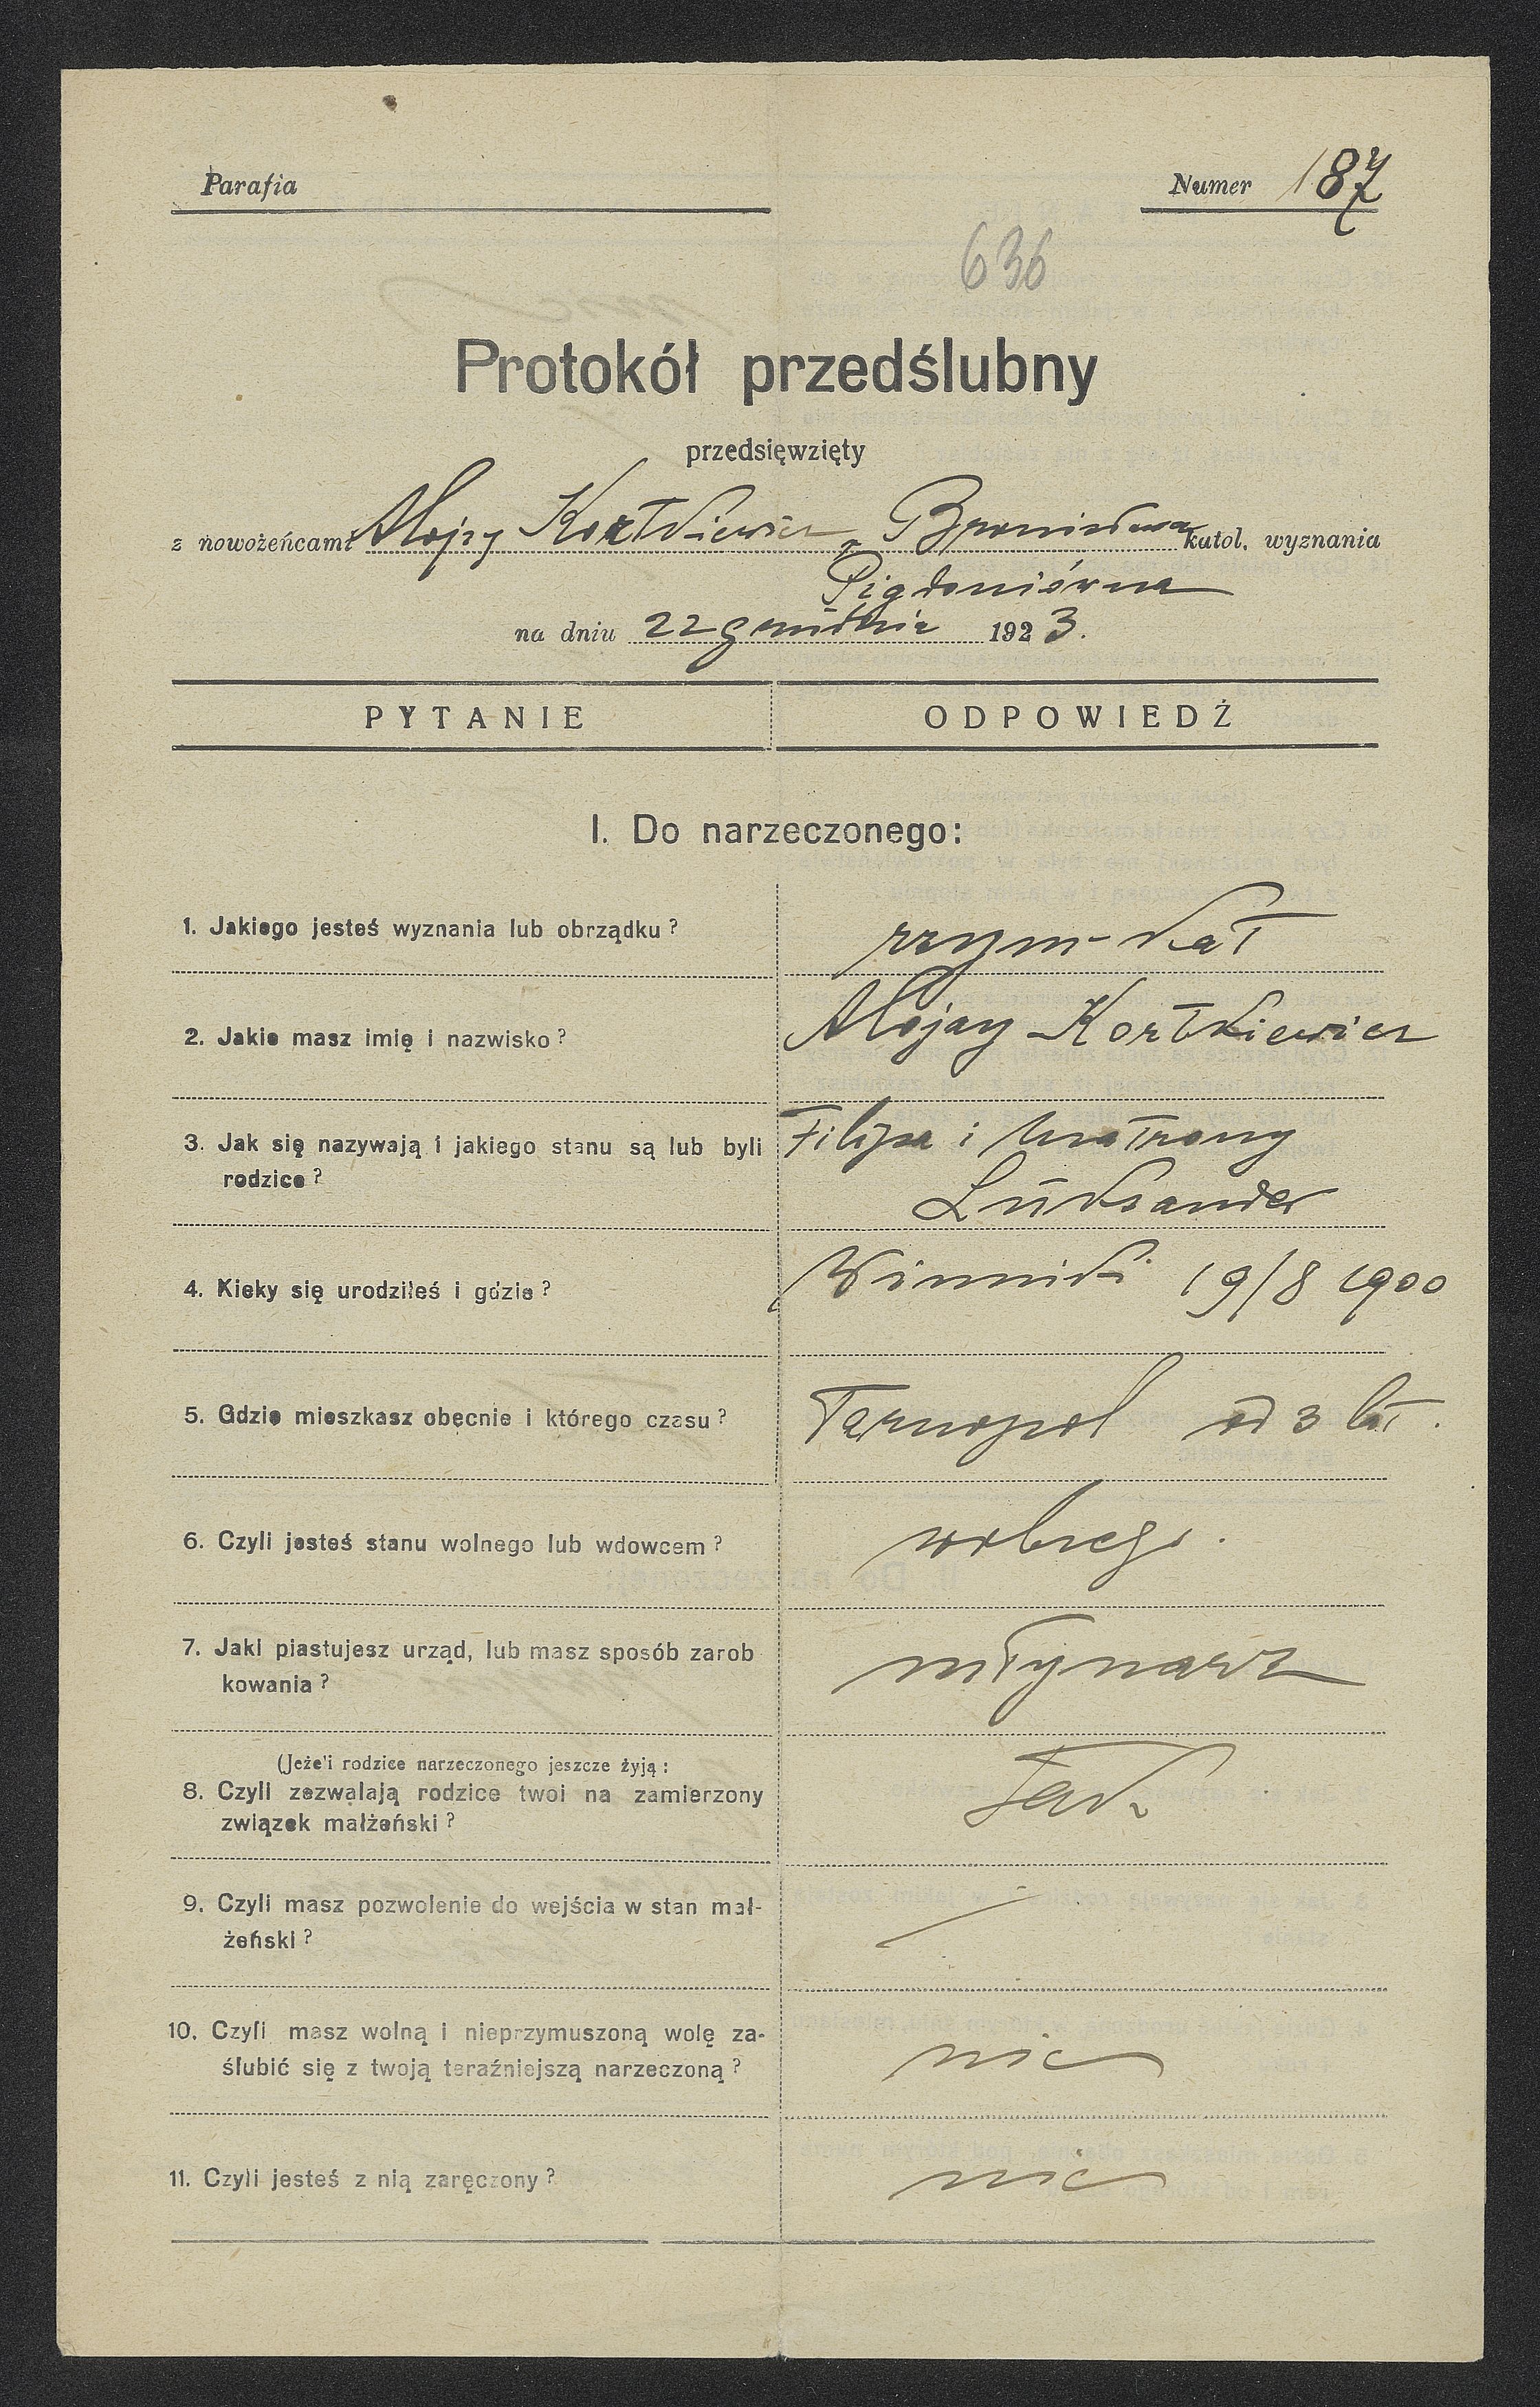 Parafia
Numer 187
636
Protokół przedślubny
przedsięwzięty
z nowożeńcami Alojzy Kortkiewicz z Bronisława katol. wyznania
Pigdoniówna
na dniu 22 grudnia 1923.
PYTANIE
ODPOWIEDŹ
I. Do narzeczonego:
1. Jakiego jesteś wyznania lub obrządku?
rzym-kat
2. Jakie masz imię i nazwisko?
Alojzy Kortkiewicz
3. Jak się nazywają i jakiego stanu są lub byli
rodzice?
Filipa i Matrony
4. Kieky się urodziłeś i gdzie?
Winniki 19/8 1900
5. Gdzie mieszkasz obecnie i którego czasu?
Tarnopol od 3 lat.
6. Czyli jesteś stanu wolnego lub wdowcem?
wolnego.
7. Jaki piastujesz urząd, lub masz sposób zarob
kowania?
młynarz
(Jeże'i rodzice narzeczonego jeszcze żyją:
8. Czyli zezwalają rodzice twoi na zamierzony
związek małżeński?
Tak
9. Czyli masz pozwolenie do wejścia w stan mał-
żeński?
10. Czyli masz wolną i nieprzymuszoną wolę za-
ślubić się z twoją teraźniejszą narzeczoną?
nie
11. Czyli jesteś z nią zaręczony?
nie